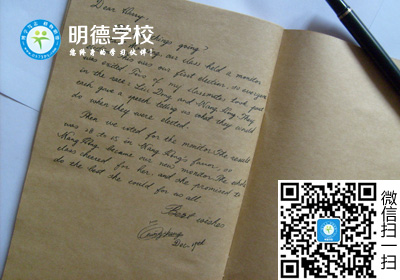 明德学校
您终身的学习伙伴!
Dear Harry
things going?
our class held a monitor
was our first election, so everyone
was excited. Two of my classmates took part
in the race: Lili Dong and Hong. They
each gave a speech telling us what they would
do when they were elected.
Then we voted for the monitor. The result
was 28 to 15, in favor, so
became our new monitor. The whole
class cheered for her, and she promised to
do the best she could for us all.
Best wishes
Dec.
微信扫一扫